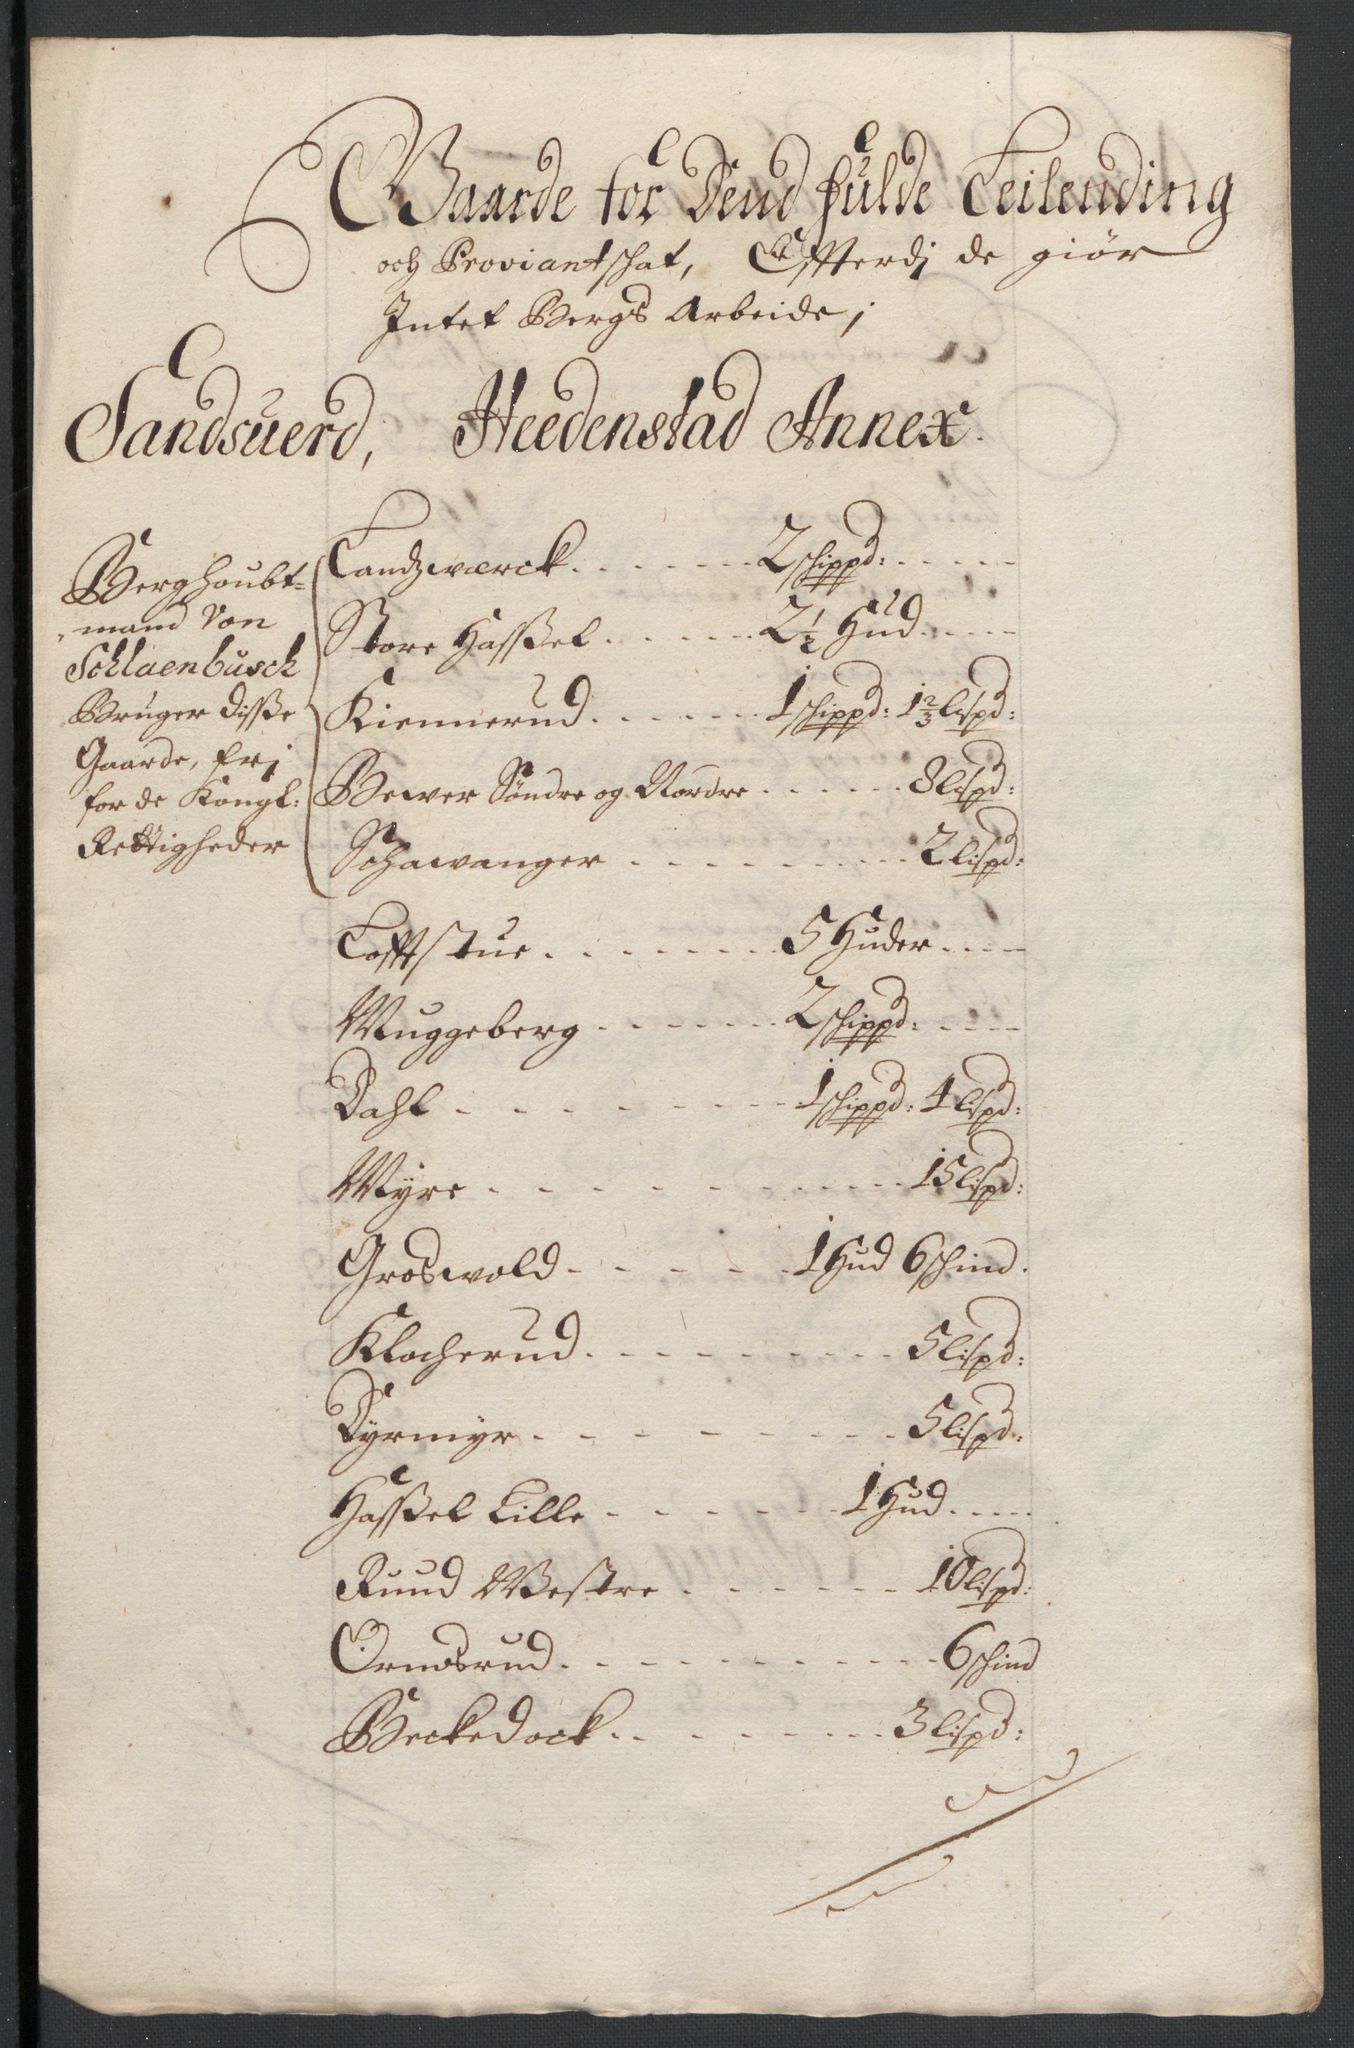 Gaarde for Dend fulde Leilending
och Proviantschat, Efterdj de giør
Intet Bergs Arbeide;
Sandsuerd, Heedenstad Annex.
Berghoubt-
mand Von
Schlaenbusch
Bruger disse
Gaarde, frj
for de Kongl:
Rettigheder
Landzwærck 2 schippd:
Store Hassel 2½ Hud
Kiennerud 1 schippd: 1⅔ lispd:
Bewer Søndre og Nordre 8 lispd:
Schawanger 2 lispd:
Lofftstue 5 Huder
Muggeberg 2 schippd:
Dahl 1 schippd: 4 lispd:
Myre 15 lispd:
Groswold 1 Hud 6 schind.
Klocherud 5 lispd:
Dyrmyr 5 lispd:
Hassel Lille 1 Hud
Ruud Westre 10 lispd:
Ornosrud 6 schind
Beckedock 3 lispd: